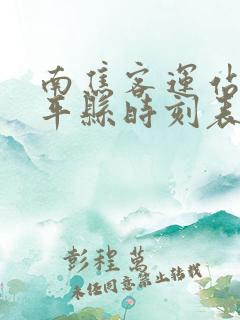 南焦客运站
车縣時刻表
彭程萬
未经同意禁止转载